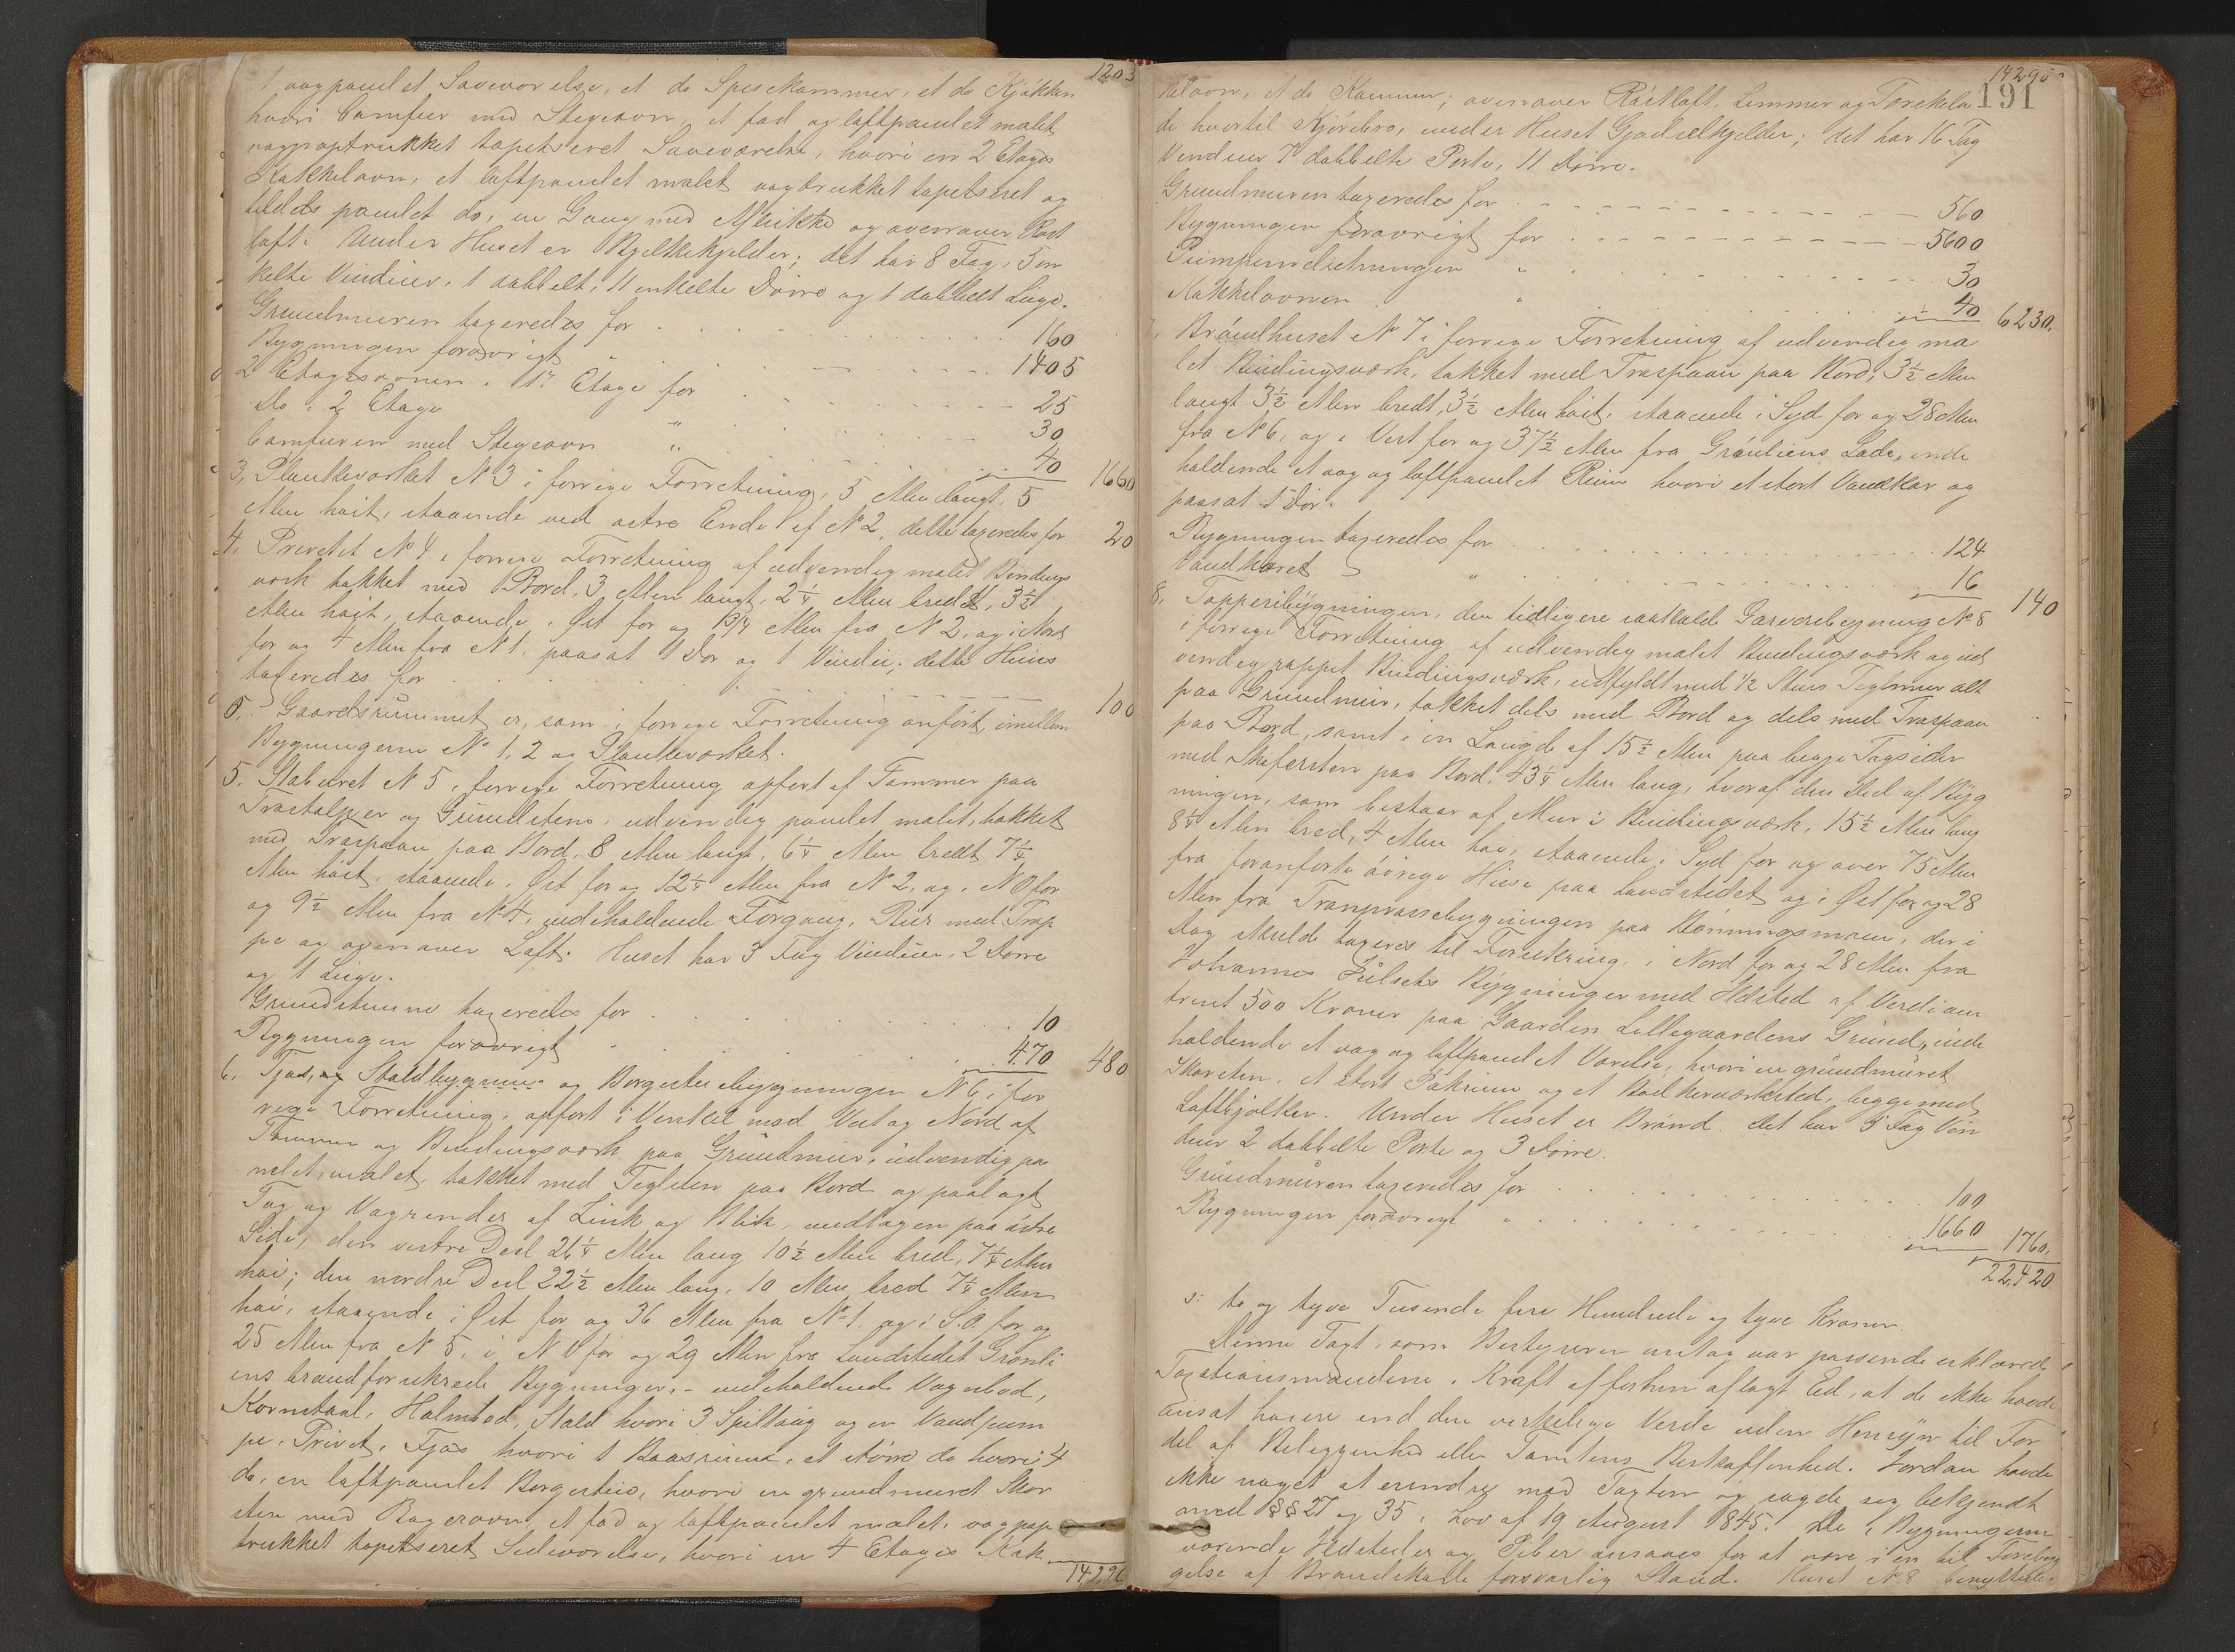 1203
vægpanelet Soveværelse, et do Spisekammer, et do Kjøkken
hvori Comfur med Stegeovn, et fad og loftpanelet malet
vægpaptrukket tapetseret Soveværelse, hvori en 2 Etages
Kakkelovn, et loftpanelet malet vægtrukket tapetseret og
tildels panelet do, en Gang med og ovenover Röst
loft. Under Huset er Kjelkekjelder; det har 8 Fag, 3 en
kelte Vinduer, 1 dobbelt, 11 enkelte Dørre og 1 dobbelt Luge.
Grundmuren taxeredes for 160
Bygningen forøvrigt " 1405
2 Etagesovnen i 1ste Etage for 25
Do i 2 Etage " 30
Comfuren med Stegeovn " 40 1660
3, Plankeværket N 3 i forrige Forretning, 5 Alen langt, 5
Alen høit, staaende ved østre Ende af No 2, dette taxeredes for 20
4, Privetet No 4 i forrige Forretning af udvendig malet Bindings
værk takket med Bord, 3 Alen langt, 2 1/4 Alen bredt, 3 1/2
Alen høit, staaende i Øst for og 13/4 Alen fra No 2, og i Nord
for og 4 Alen fra N 1, paasat 1 Dør og 1 Vindu; dette Huus
taxeredes for 100
Gaardsrummet er, som i forrige Forretning anført, imellem
Bygningerne No 1, 2 og Plankeværket.
5. Staburet N 5 i forrige Forretning opført af Tømmer paa
Træstolper og Grundstene, udvendig panelet malet, takket
med Træspaan paa Bord, 8 Alen langt, 6 1/4 Alen bredt 7 1/4
Alen høit, staaende i Øst for og 12 1/4 Alen fra N 2, og i NO for
og 9 1/2 Alen fra No 4, indeholdende Forgang, Rum med Trap
pe og ovenover Loft. Huset har 3 Fag Vinduer, 2 Dørre
og 1 Luge.
Grundstenene taxeredes for 10
Bygningen forøvrigt " 470 480
6. Fjøs og Staldbygnings og Borgestuebygningen N 6 i for
rige Forretning, opført i Vinkel mod Vest og Nord af
Tømmer og Bindingsværk paa Grundmur, udvendig pa
nelet, malet, takket med Teglsten paa Bord og paalagt
Tag og Vagrender af Zink og Blik, undtagen paa østre
Side, den vestre Deel 26 1/4 Alen lang 10 1/2 Alen bred, 7 1/4 Alen
høi; den nordre Deel 22 1/2 Alen lang, 10 Alen bred 7 1/4 Alen
høi, staaende i Øst for og 36 Alen fra No 1, og i S.O. for og
25 Alen fra N 5, i N V for og 29 Alen fra Landstedet Grønli
ens brandforsikrede Bygninger, - indeholdende Vognbod,
Kornstaal, Halmbod, Stald hvori 3 Spiltaug og en Vandpum
pe, Privet, Fjøs hvori 1 Baasrum, et større do hvori 4
do, en loftpanelet Borgestue, hvori en grundmuret Skor
sten med Bagerovn, et fad og loftpanelet malet, vægpap
trukket tapetseret Sideværelse, hvori en 4 Etages Kak
14290
14290
191
kelovn, et do Kammer; ovenover Röstloft, Lemmer og Torvkila
de hvortil Kjørebro, under Huset Gjødselkjelder; det har 16 Fag
Vinduer 7 dobbelte Porte, 11 Dørre.
Grundmuren taxeredes for 560
Bygningen forøvrigt for 5600
Pumpeindretningen " 30
Kakkelovnen " 40 6230.
7, Brøndhuset No 7 i forrige Forretning af udvendig ma
let Bindingsværk, takket med Træspaan paa Bord, 3 1/2 Alen
langt 3 1/2 Alen bredt, 3 1/2 Alen høit, staaende i Syd for og 28 Alen
fra No 6, og i Vest for og 37 1/2 Alen fra Grønliens Lade, inde
holdende et væg og loftpanelet Rum hvori et stort Vandkar og
paasat 1 Dør.
Bygningen taxeredes for 124
Vandkaret " 16 140
8, Tapperibygningen, den tidligere saakaldte Garveribygning No 8
i forrige Forretning af udvendig malet Bindingsværk og ud
vendig rappet Bindingsværk, udfyldt med 1/2 Stens Teglmur alt
paa Grundmur, takket dels med Bord og dels med Træspaan
paa Bord, samt i en Længde af 15 1/2 Alen paa begge Tagsider
med Skifersten paa Bord, 43 1/4 Alen lang, hvoraf den Deel af Byg
ningen, som bestaar af Mur i Bindingsværk, 15 1/2 Alen lang
8 1/4 Alen bred, 4 Alen høi, staaende i Syd for og over 75 Alen
fra foranførte øvrige Huse paa Landstedet og i Øst for og 28
Alen fra Tranpressebygningen paa Rønningsmoen, der i
Dag skulde taxeres til Forsikring, i Nord for og 28 Alen fra
Johannes Hulseths Bygninger med Ildsted af Verdi om
trent 500 Kroner paa Gaarden Lillegaardens Grund, inde
holdende et væg og loftpanelet Værelse, hvori en grundmuret
Skorsten, et stort Pakrum og et Bødkerværksted, begge med
Loftbjelker. Under Huset er Brønd. Det har 5 Fag Vin
duer 2 dobbelte Porte og 3 Dørre.
Grundmuren taxeredes for 100
Bygningen forøvrigt " 1660 1760.
22,420
s: to og tyve Tusende fire Hundrede og tyve Kroner.
Denne Taxt, som Bestyreren antog var passende erklærede
Taxationsmændene i Kraft af forhen aflagt Eed, at de ikke havde
ansat høiere end den virkelige Verdi uden Hensyn til For
del af Beliggenhed eller Tomtens Beskaffenhed. Jordan havde
ikke noget at erindre mod Taxten og sagde sig bekjendt
med §§ 27 og 35 i Lov af 19 August 1845. De i Bygningerne
værende Ildsteder og Piber ansaaes for at være i en til Forebyg
gelse af Brandskade forsvarlig Stand. Huset No 8 benyttedes